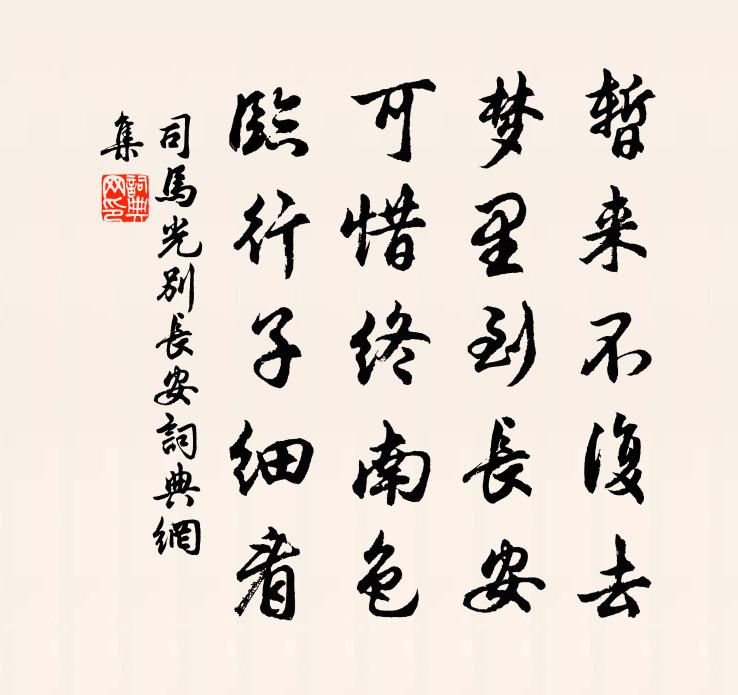 暫来不復去
梦里到長安
可惜终南色
臨行子细看
司馬光别長安詞典網
集
詞典
网印